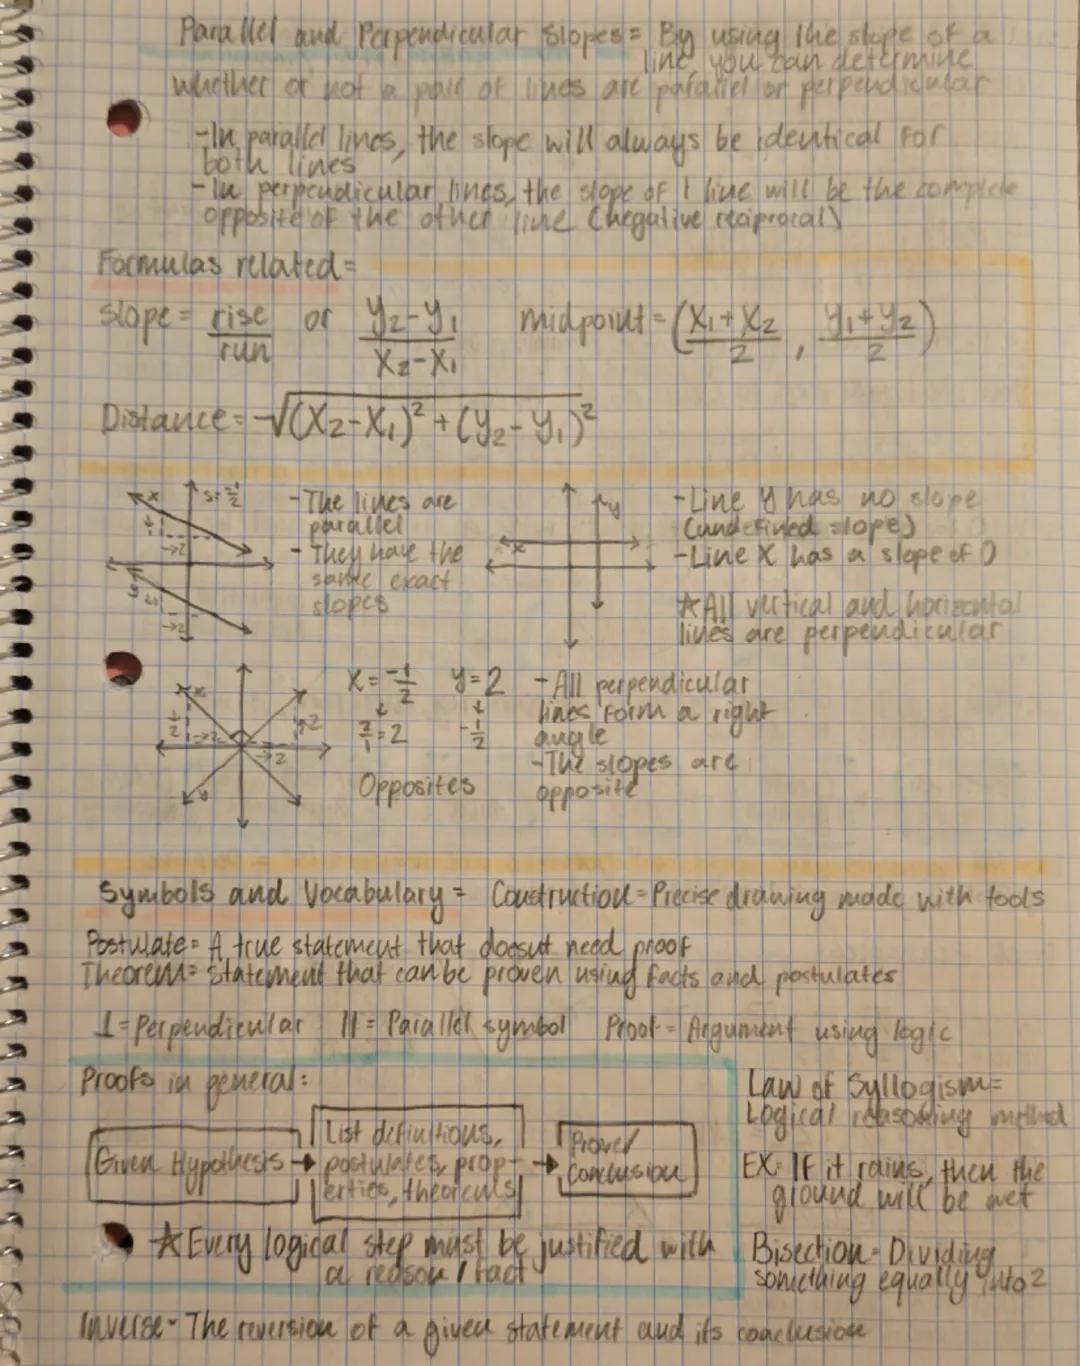 Parallel and Perpendicular Slopes = By using the slope of a
line you can determine
whether or not a pair of lines are parallel or perpendicular
-In parallel lines, the slope will always be identical For
both lines
-In perpendicular lines, the slope of 1 line will be the complete
opposite of the other line (negative reciprocal)
Formulas related=
Slope = rise/run or y₂-y₁/x₂-x₁ midpoint = (x₁+x₂/2, y₁+y₂/2)
Distance = √(x₂-x₁)² + (y₂-y₁)²
x S=-1/2
↓1
→2
y
↓1
→2
-The lines are
parallel
-They have the
same exact
slopes
y
x
-Line y has no slope
(undefined slope)
-Line X has a slope of 0
☆All vertical and horizontal
lines are perpendicular
x
→2
↑2
→2
y
X = -1/2 y = 2
↓ ↓
2/1 = 2 -1/2
Opposites
-All perpendicular
lines form a right
angle
-The slopes are
opposite
Symbols and Vocabulary = Construction = Precise drawing made with tools
Postulate = A true statement that doesnt need proof
Theorem = Statement that can be proven using facts and postulates
⊥ = Perpendicular || = Parallel symbol Proof = Argument using logic
Proofs in general:
Given Hypothesis →
List definitions,
postulates, prop-
erties, theorems
→
Prove/
conclusion
☆Every logical step must be justified with
a reason / fact
Law of Syllogism =
Logical reasoning method
EX: If it rains, then the
ground will be wet
Bisection = Dividing
something equally into 2
Inverse - The reversion of a given statement and its conclusion